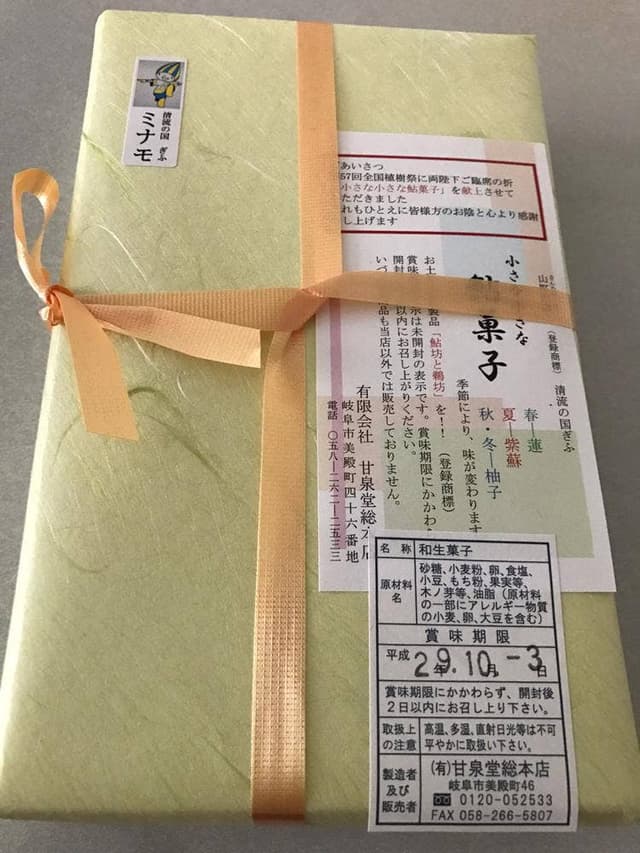 清流の国 ぎふ
ミナモ
あいさつ
57回全国植樹祭に両陛下ご臨席の折
小さな小さな鮎菓子」を献上させて
ただきました
れもひとえに皆様方のお陰と心より感謝
し上げます
(登録商標) 清流の国ぎふ
小さ
さな
菓子
春―蓮
夏―紫蘇
秋・冬―柚子
季節により、味が変わります
製品「鮎坊と鵜坊」を!! (登録商標)
示は未開封の表示です。賞味期限にかかわ
以内にお召し上がりください。
品も当店以外では販売しておりません。
有限会社 甘泉堂総本店
岐阜市美殿町四十六番地
電話 〇五八―二六二―二五三三
名 称 和生菓子
原材料名 砂糖、小麦粉、卵、食塩、
小豆、もち粉、果実等、
木ノ芽等、油脂(原材料
の一部にアレルギー物質
の小麦、卵、大豆を含む)
賞味期限
平成 29年10月-3日
賞味期限にかかわらず、開封後
2日以内にお召し上り下さい。
取扱上の注意 高温、多湿、直射日光等は不可
平やかに取扱い下さい。
製造者及び販売者 (有)甘泉堂総本店
岐阜市美殿町46
0120-052533
FAX 058-266-5807